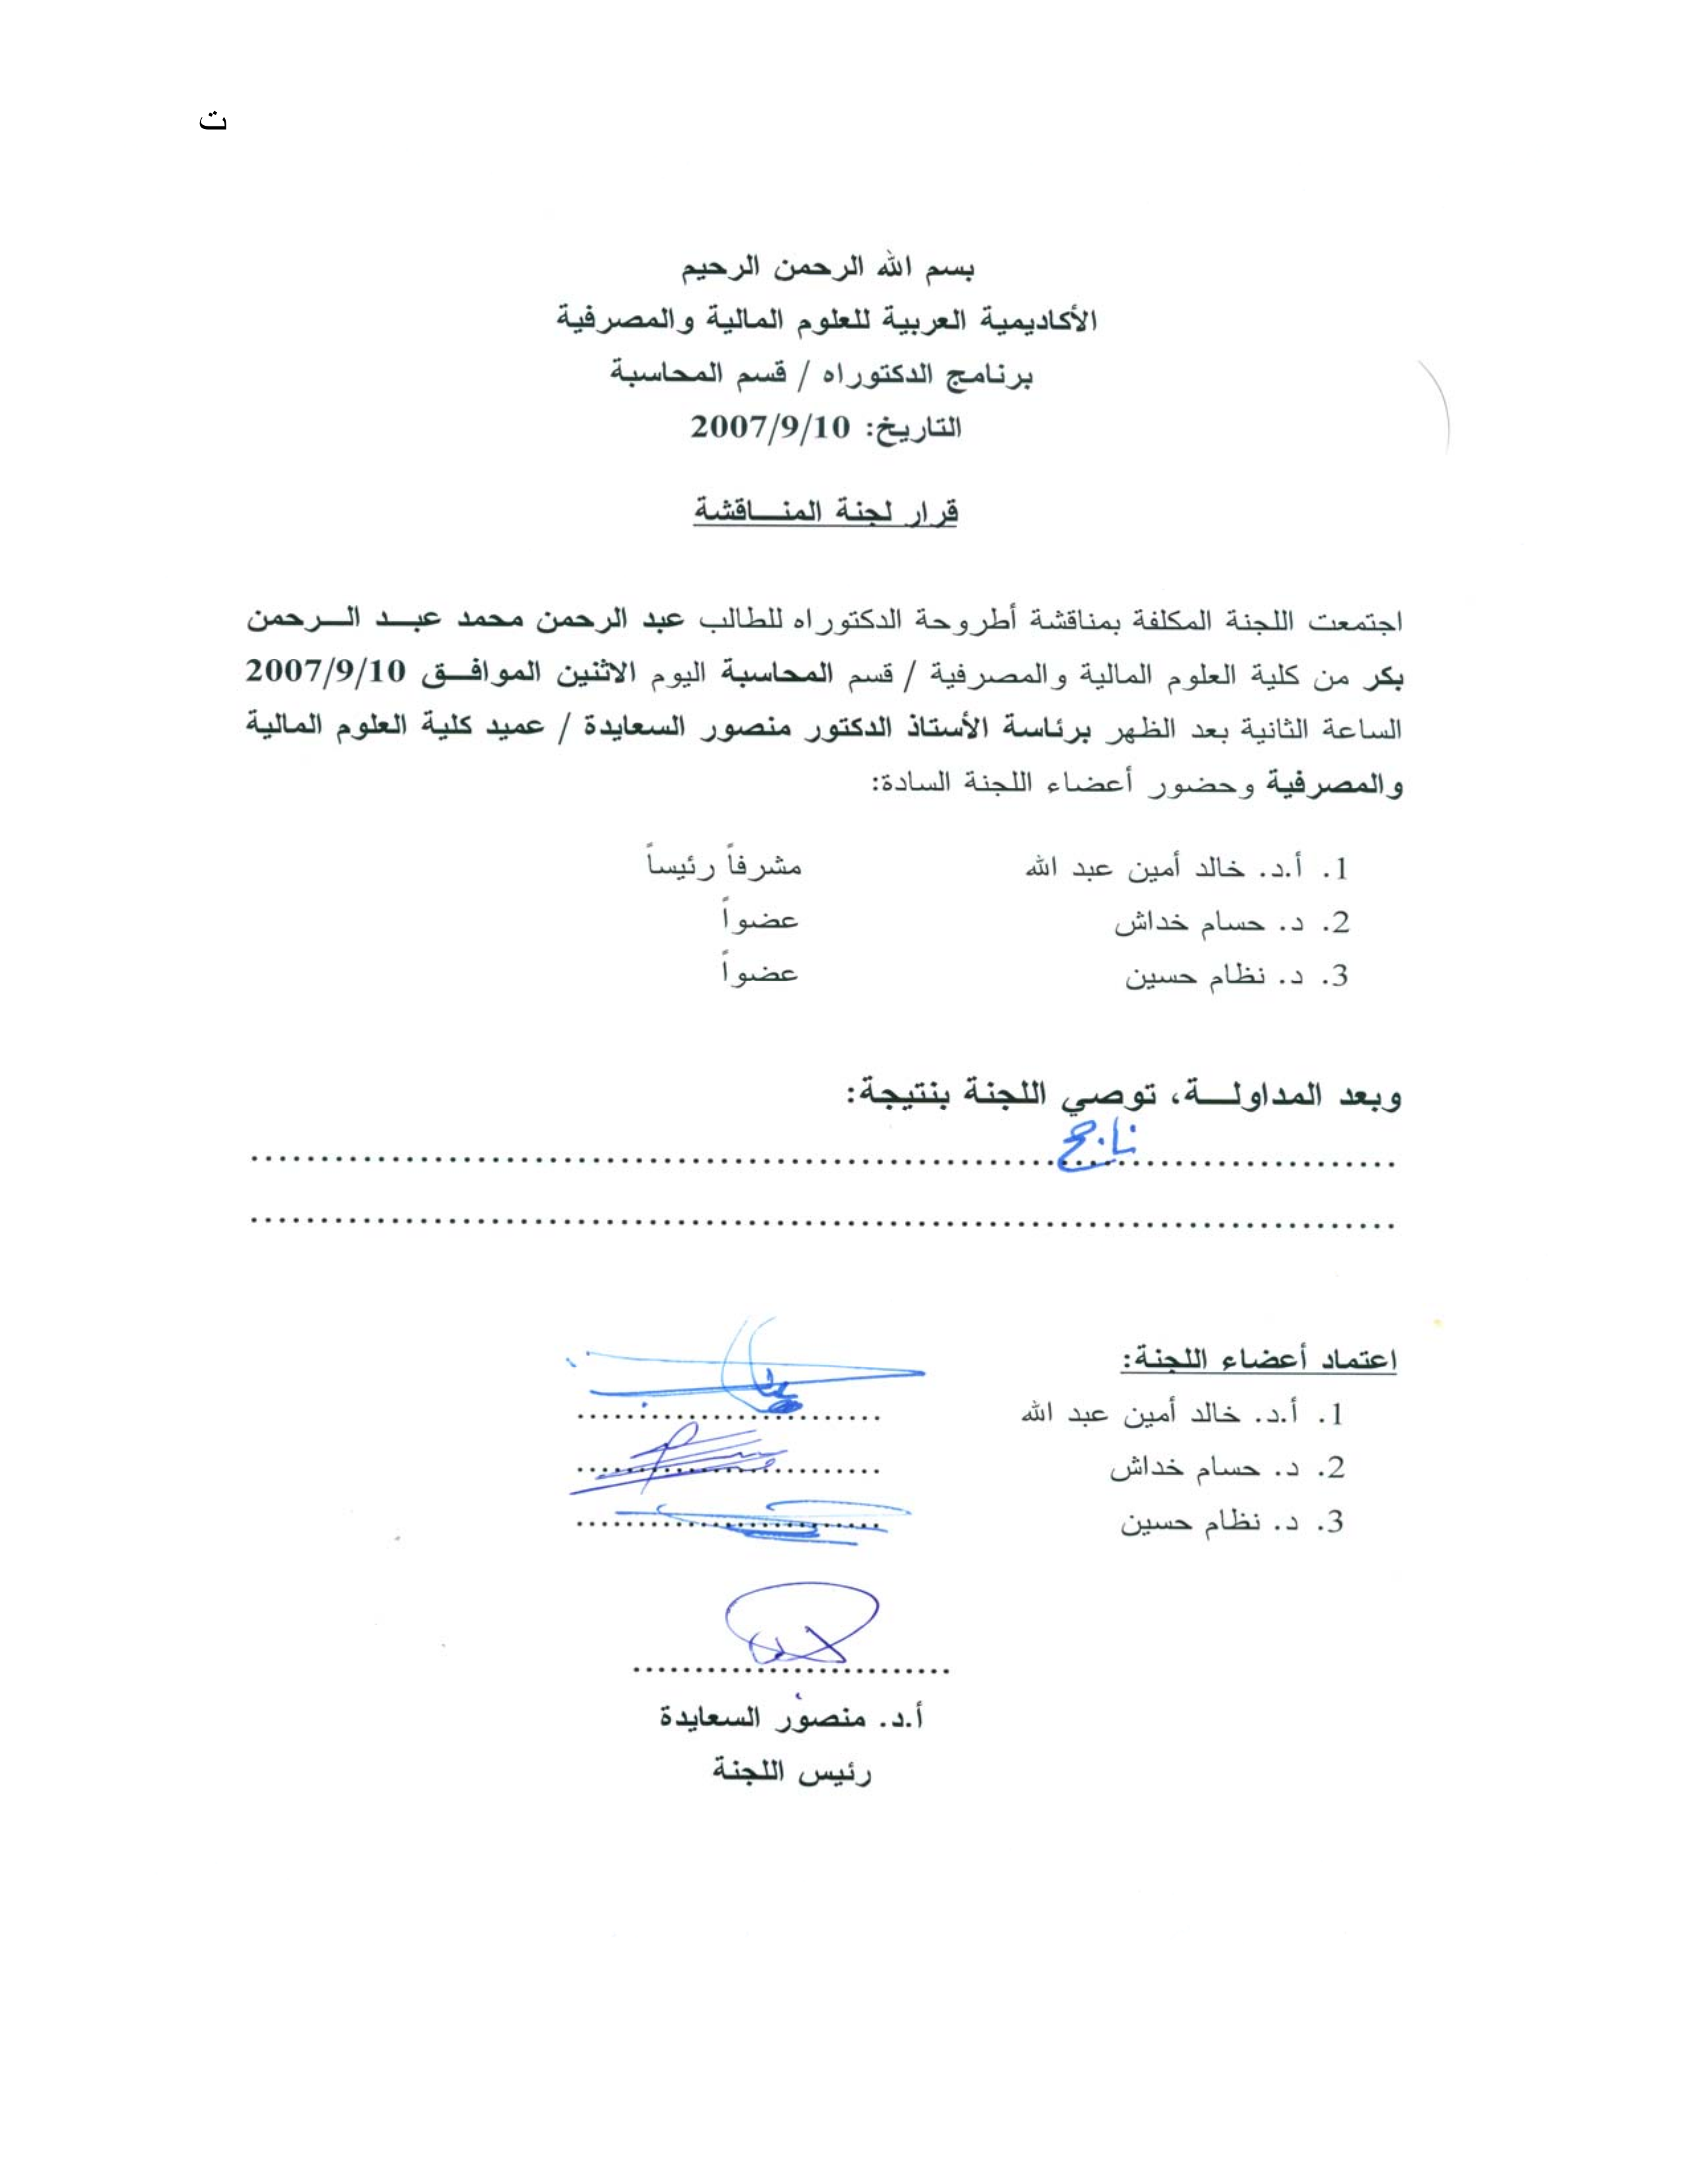 ت
بسم الله الرحمن الرحيم
الأكاديمية العربية للعلوم المالية والمصرفية
برنامج الدكتوراه / قسم المحاسبة
التاريخ: 2007/9/10
قرار لجنة المنـــاقشة
اجتمعت اللجنة المكلفة بمناقشة أطروحة الدكتوراه للطالب عبد الرحمن محمد عبـــد الـــرحمن
بكر من كلية العلوم المالية والمصرفية / قسم المحاسبة اليوم الاثنين الموافـــق 2007/9/10
الساعة الثانية بعد الظهر برئاسة الأستاذ الدكتور منصور السعايدة / عميد كلية العلوم المالية
والمصرفية وحضور أعضاء اللجنة السادة:
1. أ.د. خالد أمين عبد الله مشرفاً رئيساً
2. د. حسام خداش عضواً
3. د. نظام حسين عضواً
وبعد المداولـــة، توصي اللجنة بنتيجة:
ناجح
اعتماد أعضاء اللجنة:
1. أ.د. خالد أمين عبد الله
2. د. حسام خداش
3. د. نظام حسين
أ.د. منصور السعايدة
رئيس اللجنة